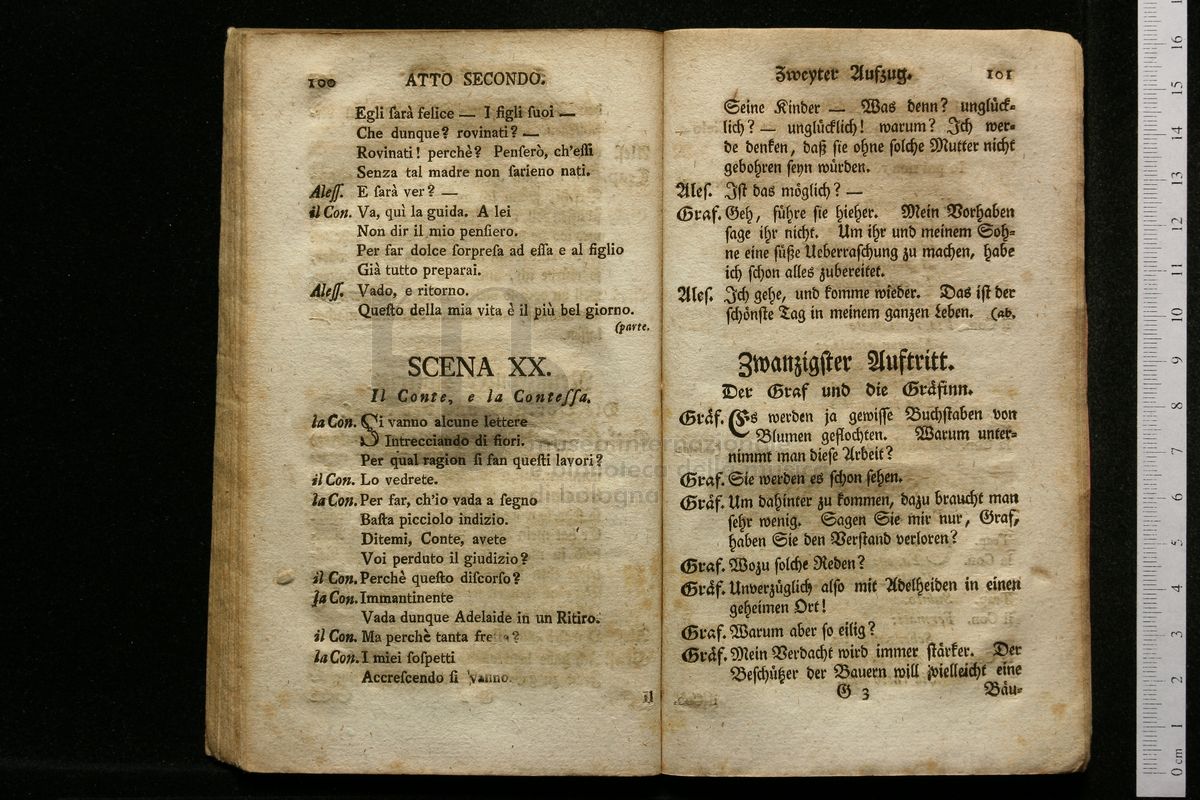 100 ATTO SECONDO.
Egli ſarà felice — I figli ſuoi —
Che dunque? rovinati? —
Rovinati! perchè? Penſerò, ch'eſſi
Senza tal madre non ſarieno nati.
Aleſſ. E ſarà ver? —
il Con. Va, quì la guida. A lei
Non dir il mio penſiero.
Per far dolce ſorpreſa ad eſſa e al figlio
Già tutto preparai.
Aleſſ. Vado, e ritorno.
Queſto della mia vita è il più bel giorno.
(parte.
SCENA XX.
Il Conte, e la Conteſſa.
la Con. Si vanno alcune lettere
Intrecciando di fiori.
Per qual ragion ſi fan queſti lavori?
il Con. Lo vedrete.
la Con. Per far, ch'io vada a ſegno
Baſta picciolo indizio.
Ditemi, Conte, avete
Voi perduto il giudizio?
il Con. Perchè queſto diſcorſo?
la Con. Immantinente
Vada dunque Adelaide in un Ritiro.
il Con. Ma perchè tanta
la Con. I miei ſoſpetti
Accreſcendo ſi vanno.
il
Zweyter Aufzug. 101
Seine Kinder — Was denn? unglück-
lich? — unglücklich! warum? Ich wer-
de denken, daß ſie ohne ſolche Mutter nicht
gebohren ſeyn würden.
Aleſ. Iſt das möglich? —
Graf. Geh, führe ſie hieher. Mein Vorhaben
ſage ihr nicht. Um ihr und meinem Soh-
ne eine ſüße Ueberraſchung zu machen, habe
ich ſchon alles zubereitet.
Aleſ. Ich gehe, und komme wieder. Das iſt der
ſchönſte Tag in meinem ganzen Leben. (ab.
Zwanzigſter Auftritt.
Der Graf und die Gräfinn.
Gräf. Es werden ja gewiſſe Buchſtaben von
Blumen geflochten. Warum unter-
nimmt man dieſe Arbeit?
Graf. Sie werden es ſchon ſehen.
Gräf. Um dahinter zu kommen, dazu braucht man
ſehr wenig. Sagen Sie mir nur, Graf,
haben Sie den Verſtand verloren?
Graf. Wozu ſolche Reden?
Gräf. Unverzüglich alſo mit Adelheiden in einen
geheimen Ort!
Graf. Warum aber ſo eilig?
Gräf. Mein Verdacht wird immer ſtärker. Der
Beſchützer der Bauern will vielleicht eine
G 3 Bäu-
museo internazionale
e biblioteca della musica
di bologna
0 cm 1 2 3 4 5 6 7 8 9 10 11 12 13 14 15 16